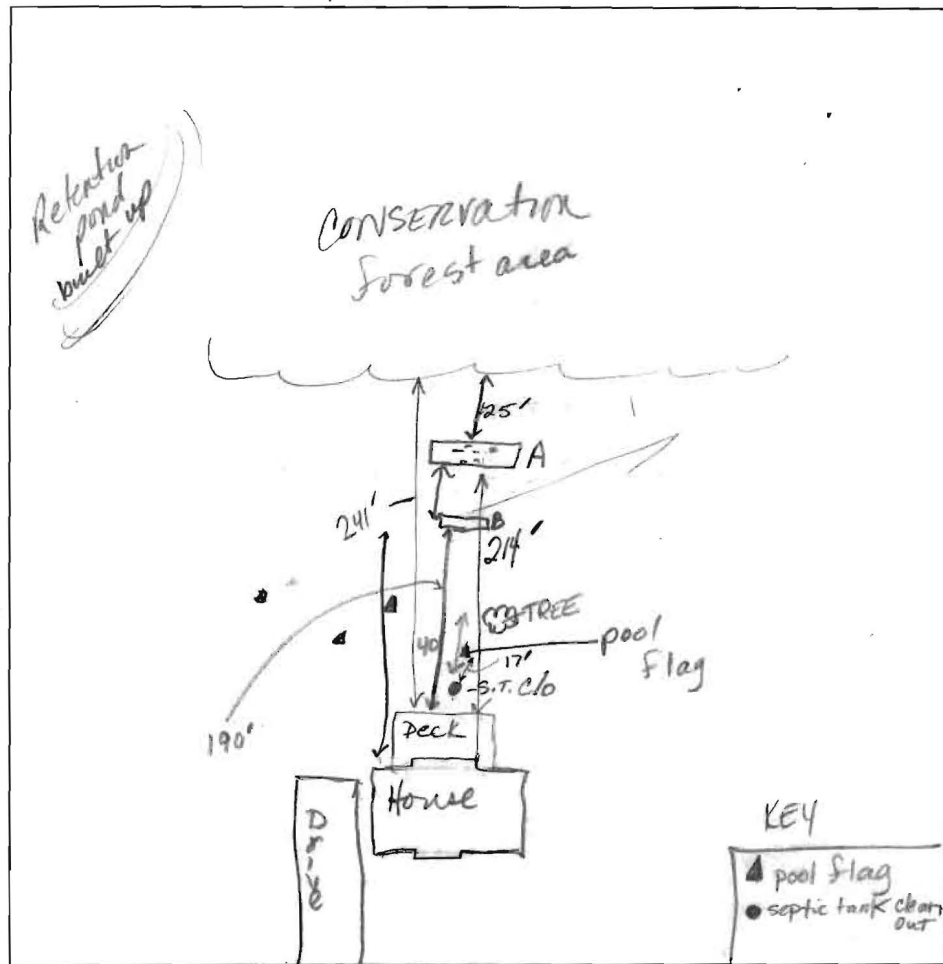 Retention
pond
built up
CONSERVATION
forest area
25'
A
241'
B
214'
TREE
40
pool
flag
17'
S.T. C/O
190'
Deck
House
Drive
KEY
pool flag
septic tank clean
OUT